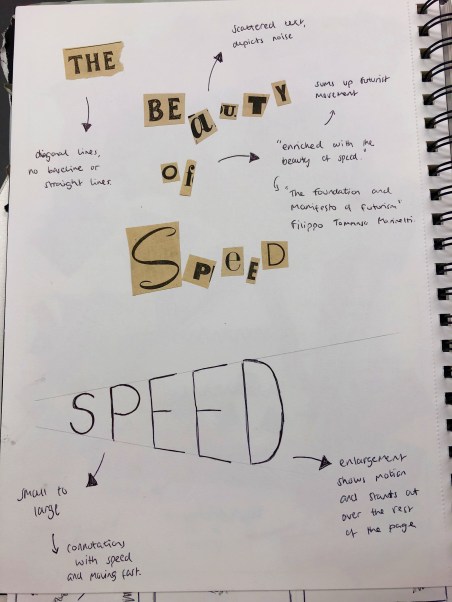 THE
scattered text,
depicts noise
BEaUTY
sums up futurist
movement
diagonal lines,
no baseline or
straight lines.
of
"enriched with the
beauty of speed."
"The foundation and
Manifesto of Futurism"
Filippo Tommaso Marinetti.
SPeED
SPEED
small to
large
connotations
with speed
and moving fast.
enlargement
shows motion
and stands out
over the rest
of the page